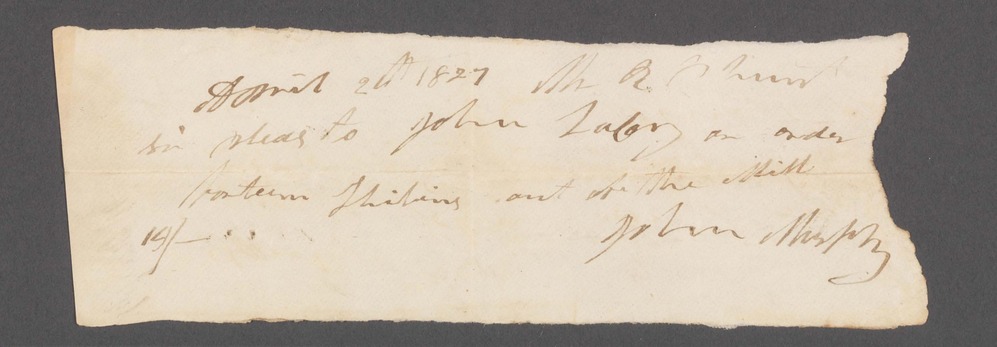 April 2th 1827 Mr R
Sir pleas to John or order
forteen Shilins out of the Mill
14/- John Murphy